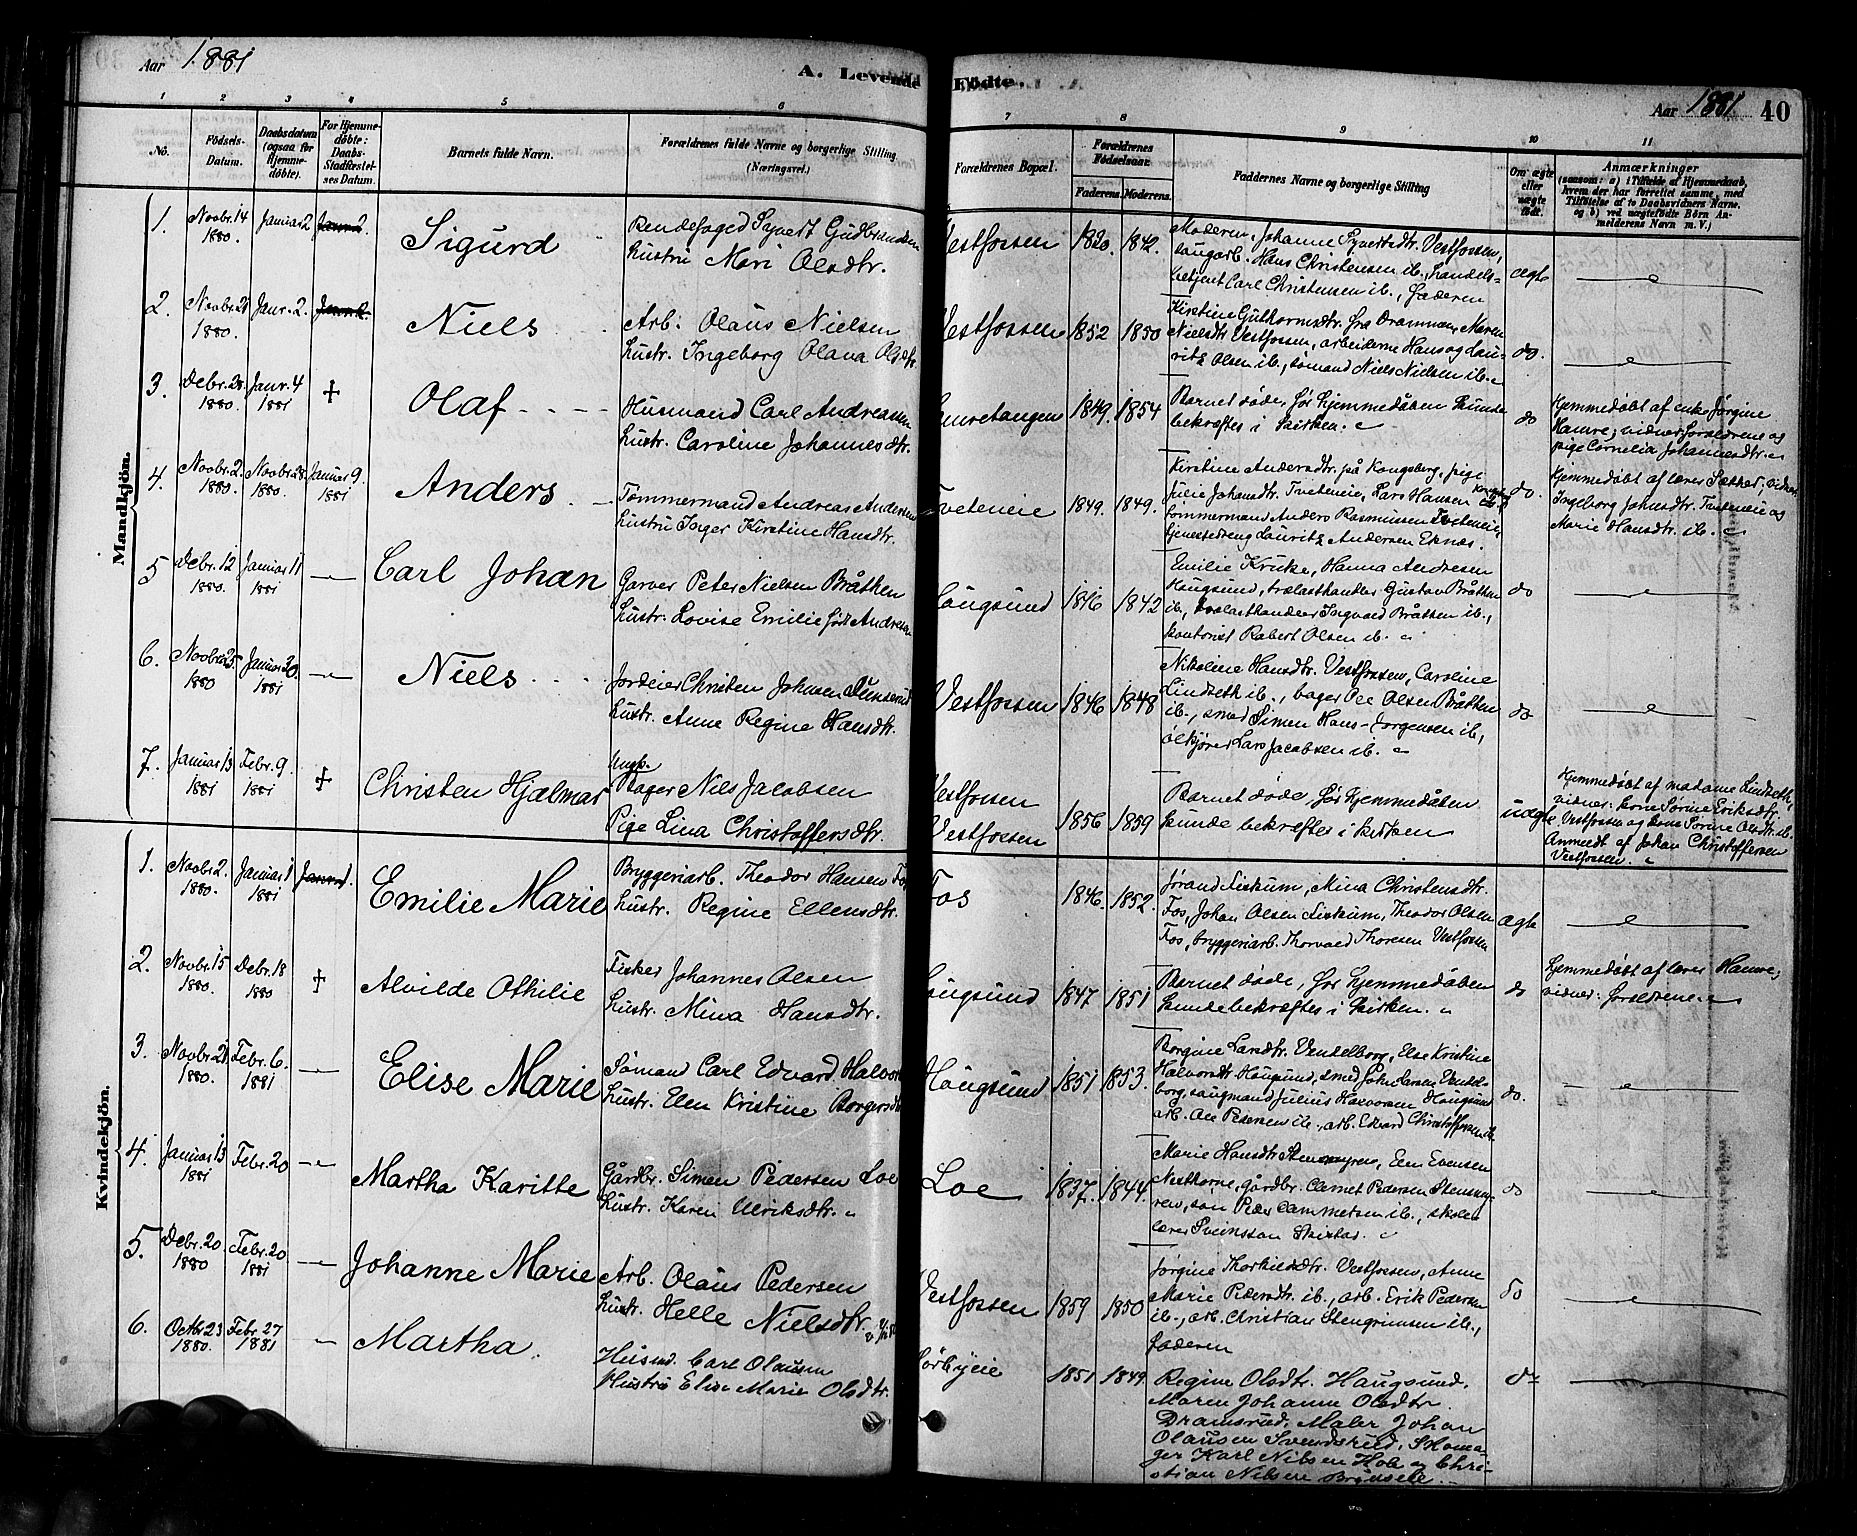 Aar 1881
A. Levende Födte.
Aar 1881 40
1 2 3 4 5 6 7 8 9 10 11
No.
Födsels-
Datum.
Daabsdatum
(ogsaa for
Hjemme-
döbte).
For Hjemme-
döbte:
Daabs-
Stadfæstel-
ses Datum.
Barnets fulde Navn.
Forældrenes fulde Navne og borgerlige Stilling
(Næringsvei.)
Forældrenes Bopæl.
Forældrenes
Födselsaar.
Faderens. Moderens.
Faddernes Navne og borgerlige Stilling
Om ægte
eller
uægte
födt.
Anmærkninger
(saasom: a) i Tilfælde af Hjemmedaab,
hvem der har forrettet samme, med
Tilföielse af to Daabsvidners Navne,
og b) ved uægtefödte Börn An-
melderens Navn m. V.)
Mandkjön.
1. Novbr. 14
1880.
Januar 2
Sigurd
Syvert Gudbrandsen
Hustru Mari Olsdtr.
Vestfossen 1820. 1842.
Moderen, Johanne Syvertsdtr. Vestfossen,
Hans Christensen ib., handels-
betjent Carl Christensen ib., Faderen
ægte
2. Novbr. 21
1880.
Janr. 2.
Niels
Arb. Olaus Nielsen
Hustr. Ingeborg Olava Olsdtr.
Vestfossen 1852 1850
Kirstine Guthormsdtr. fra Drammen, Maren
Nielsdtr. Vestfossen, arbeiderne Hans og Lau-
ritz Olsen ib., sømand Niels Nielsen ib.
do.
3. Debr. 28
1880.
Janr. 4
1881
+
Olaf
Husmand Carl Andreassen
Hustr. Caroline Johannesdtr.
1849. 1854
Barnet døde, før hjemmedåben kunde
bekræftes i kirken.
do
Hjemmedøbt af enke Jørgine
Hamre; vidner: forældrene og
pige Cornelia Johannesdtr.
4. Novbr. 2.
1880.
Novbr. 28
1880.
Januar 9.
1881
Anders
Tømmermand Andreas Andersen
Hustru Inger Kirstine Hansdtr.
Tveteneie 1849. 1849.
Kirstine Andersdtr. på Kongsberg, pige
Julie Johansdtr. Tveteneie, Lars Hansen
tømmermand Anders Rasmussen Tveteneie,
tjenestedreng Lauritz Andersen Eknæs.
do.
Hjemmedøbt af lærer Sæther; vidner
Ingeborg Johnsdtr. Tveteneie og
Marie Hansdtr. ib.
5 Debr. 12
1880.
Januar 11
1881
Carl Johan
Garver Peter Nielsen Bråthen
Hustr. Lovise Emilie født Andresen
Hougsund 1846 1842
Emilie Kruke, Hanna Andresen
Haugsund, trælasthandler Gustav Bråthen
ib., trælasthandler Ingvald Bråthen ib.,
kontorist Robert Olsen ib.
do
6. Novbr. 25.
1880
Januar 30.
1881
Niels
Jordeier Christen Johnsen
Hustr. Anne Regine Hansdtr.
Vestfossen 1846 1848
Nikoline Hansdtr. Vestfossen, Caroline
Lindseth ib., bager Ole Olsen Bråthen
ib., smed Simen Hans-Jørgensen ib.,
ølkjører Lars Jacobsen ib.
do
7. Januar 13
1881
Febr. 9.
1881
+
Christen Hjalmar
Ungk.
Bager Nils Jacobsen
Pige Lina Christoffersdtr.
Vestfossen
Vestfossen
1856 1859
Barnet døde, før hjemmedåben
kunde bekræftes i kirken
uægte
Hjemmedøbt af madame Lindseth,
vidner: kone Sørine Eriksdtr.
Vestfossen og kone Sørine Olsdtr. ib.
Anmeldt af Johan Christoffersen
Vestfossen.
Kvindekjön.
1. Novbr. 2.
1880.
Januar 1
1881
Emilie Marie
Bryggeriarb. Theodor Hansen Fos
Hustr. Regine Ellensdtr.
Fos 1846. 1852.
Jørand Fiskum, Mina Christensdtr.
Fos, Johan Olsen Fiskum, Theodor Olsen
Fos, bryggeriarb. Thorvald Thoresen Vestfossen
ægte
2. Novbr. 15
1880.
Debr. 18
1880
+
Alvilde Othilie
Fisker Johannes Olsen
Hustr. Mina Hansdtr.
Hougsund 1847 1851
Barnet døde, før hjemmedåben
kunde bekræftes i kirken.
do
Hjemmedøbt af lærer Hamre;
vidner: forældrene.
3. Novbr. 21
1880.
Febr. 6.
1881
Elise Marie
Sømand Carl Edvard Halvors
Hustr. Elen Kristine Borgersdtr
Hougsund 1851 1853.
Borgine Larsdtr. Vendelborg, Else Kristine
Halvorsdtr. Hougsund, smed John Larsen Vendel-
borg, Julius Halvorsen Hougsund
arb. Ole Pedersen ib., arb. Edvard Christoffersen ib.
do.
4. Januar 13
1881
Febr. 20
Martha Karitte
Gårdbr. Simen Pedersen Loe
Hustr. Karen Ulriksdtr.
Loe 1837. 1844.
Marie Hansdtr. Stensmyren, Elen Evensen
gårdbr. Clemet Pedersen Stensmy-
ren, søn Peder Clemmetsen ib., skole-
lærer Sveinsson
do
5. Debr. 20
1880
Febr. 20
1881
Johanne Marie
Arb. Olaus Pedersen
Hustr. Helle Nielsdtr.
Vestfossen 1859 1850
Jørgine Thorkildsdtr. Vestfossen, Anne
Marie Pedersdtr. ib., arb. Erik Pedersen
ib., arb. Christian Stengrimsen ib.,
Faderen
do
6. Octbr. 23
1880.
Febr. 27
1881
Martha.
Husmd. Carl Olausen
Hustru Elise Marie Olsdtr.
1851 1849.
Regine Olsdtr. Haugsund.
Maren Johanne Olsdtr.
Dramsrud. Maler Johan
Olausen Svendsrud. Skoma-
ger Karl Nilsen Hob Chri-
stian Nilsen
do